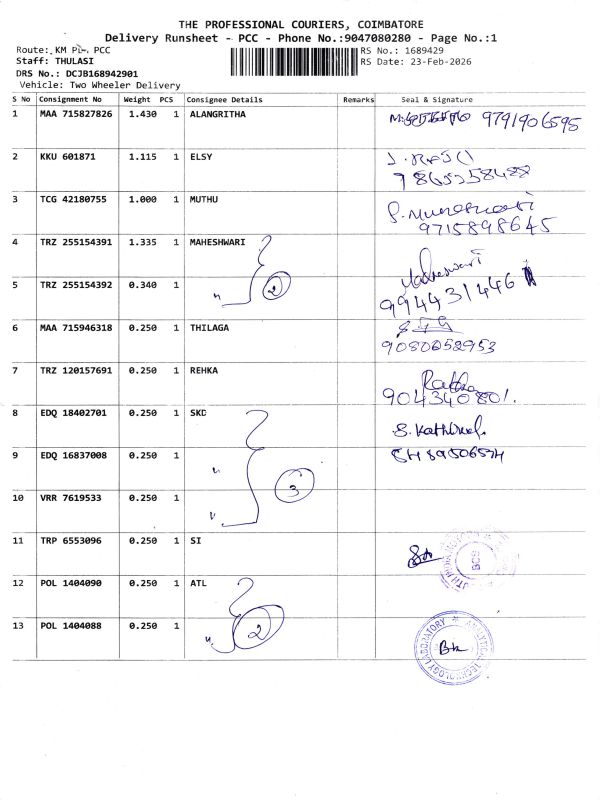 THE PROFESSIONAL COURIERS, COIMBATORE
Delivery Runsheet - PCC - Phone No.:9047080280 - Page No.:1
Route: KM PL. PCC
RS No.: 1689429
Staff: THULASI
RS Date: 23-Feb-2026
DRS No.: DCJB168942901
Vehicle: Two Wheeler Delivery
S No Consignment No Weight PCS Consignee Details Remarks Seal & Signature
1 MAA 715827826 1.430 1 ALANGRITHA 9791906595
2 KKU 601871 1.115 1 ELSY
3 TCG 42180755 1.000 1 MUTHU
9715898645
4 TRZ 255154391 1.335 1 MAHESHWARI Maheswari
2
5 TRZ 255154392 0.340 1 994431446
6 MAA 715946318 0.250 1 THILAGA
9080658953
7 TRZ 120157691 0.250 1 REHKA
904340801.
8 EDQ 18402701 0.250 1 SKD
9 EDQ 16837008 0.250 1
3
10 VRR 7619533 0.250 1
11 TRP 6553096 0.250 1 SI
12 POL 1404090 0.250 1 ATL
2
13 POL 1404088 0.250 1
ANALYTICAL TECHNOLOGY LABORATORY